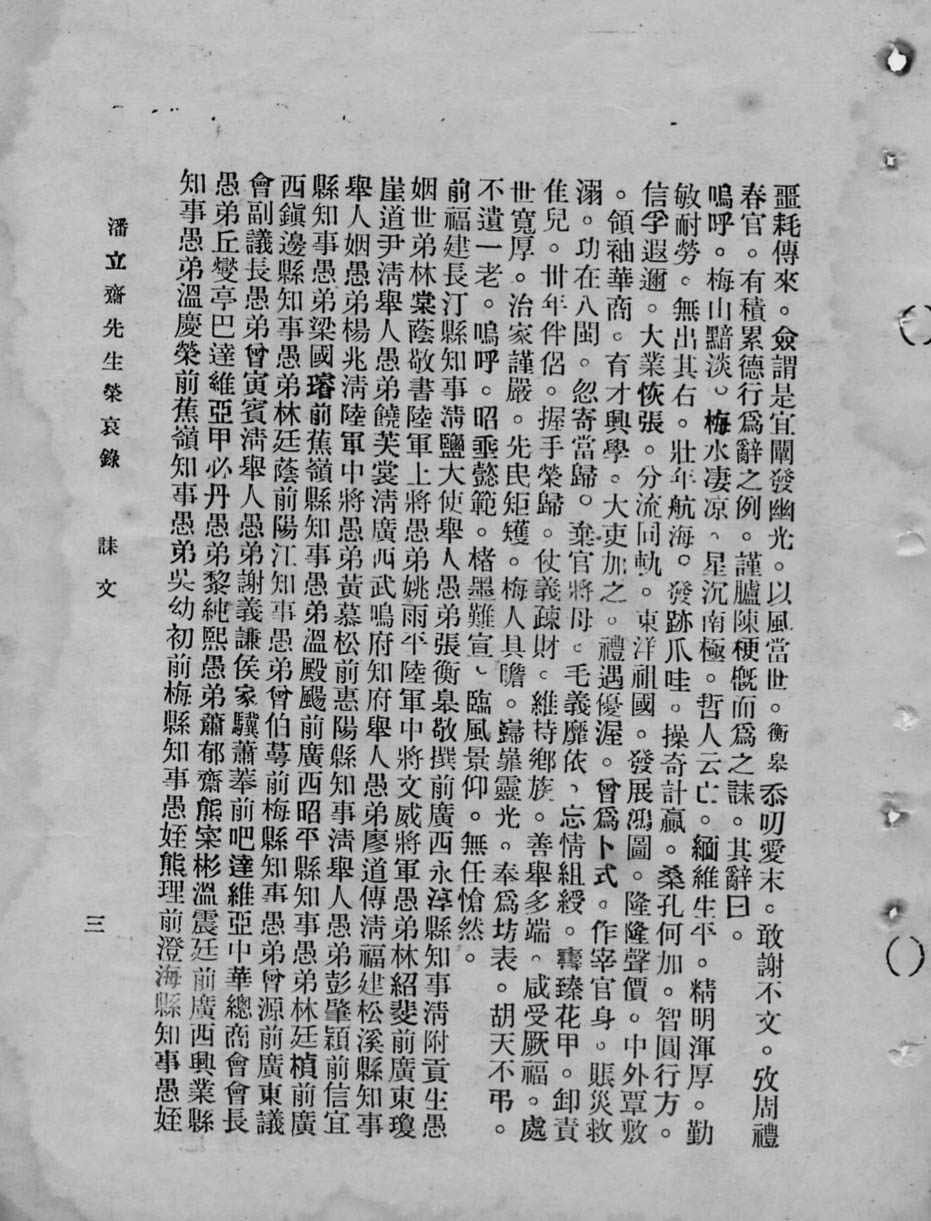 噩耗傳來。僉謂是宜闡發幽光。以風當世。衡臯忝叨愛末。敢謝不文。攷周禮
春官。有積累德行爲辭之例。謹臚陳梗槪而爲之誄。其辭曰。
嗚呼。梅山黯淡。梅水凄凉、星沉南極。哲人云亡。緬維生平。精明渾厚。勤
敏耐勞。無出其右。壯年航海。發跡爪哇。操奇計贏。桑孔何加。智圓行方。
信孚遐邇。大業恢張。分流同軌。東洋祖國。發展鴻圖。隆隆聲價。中外覃敷
。領袖華商。育才興學。大吏加之。禮遇優渥。曾爲卜式。作宰官身。賬災救
溺。功在八閩。忽寄當歸。棄官將母。毛義靡依、忘情組綬。壽臻花甲。卸責
佳兒。卅年伴侶。握手榮歸。仗義疎財。維持鄉族。善舉多端。咸受厥福。處
世寬厚。治家謹嚴。先民矩矱。梅人具瞻。巋靠靈光。奉爲坊表。胡天不弔。
不遺一老。嗚呼。昭垂懿範。楮墨難宣、臨風景仰。無任愴然。
前福建長汀縣知事淸鹽大使舉人愚弟張衡臯敬撰前廣西永淳縣知事淸附貢生愚
姻世弟林棠蔭敬書陸軍上將愚弟姚雨平陸軍中將文威將軍愚弟林紹斐前廣東瓊
崖道尹淸舉人愚弟饒芙裳淸廣西武鳴府知府舉人愚弟廖道傳淸福建松溪縣知事
舉人姻愚弟楊兆淸陸軍中將愚弟黃慕松前惠陽縣知事淸舉人愚弟彭肇穎前信宜
縣知事愚弟梁國璿前蕉嶺縣知事愚弟溫殿颺前廣西昭平縣知事愚弟林廷楨前廣
西鎭邊縣知事愚弟林廷蔭前陽江知事愚弟曾伯蕚前梅縣知事愚弟曾源前廣東議
會副議長愚弟曾寅賓淸舉人愚弟謝義謙侯家驥蕭菶前吧達維亞中華總商會會長
愚弟丘燮亭巴達維亞甲必丹愚弟黎純熙愚弟蕭郁齋熊寀彬溫震廷前廣西興業縣
知事愚弟溫慶榮前蕉嶺知事愚弟吳幼初前梅縣知事愚姪熊理前澄海縣知事愚姪
潘立齋先生榮哀錄 誄文 三